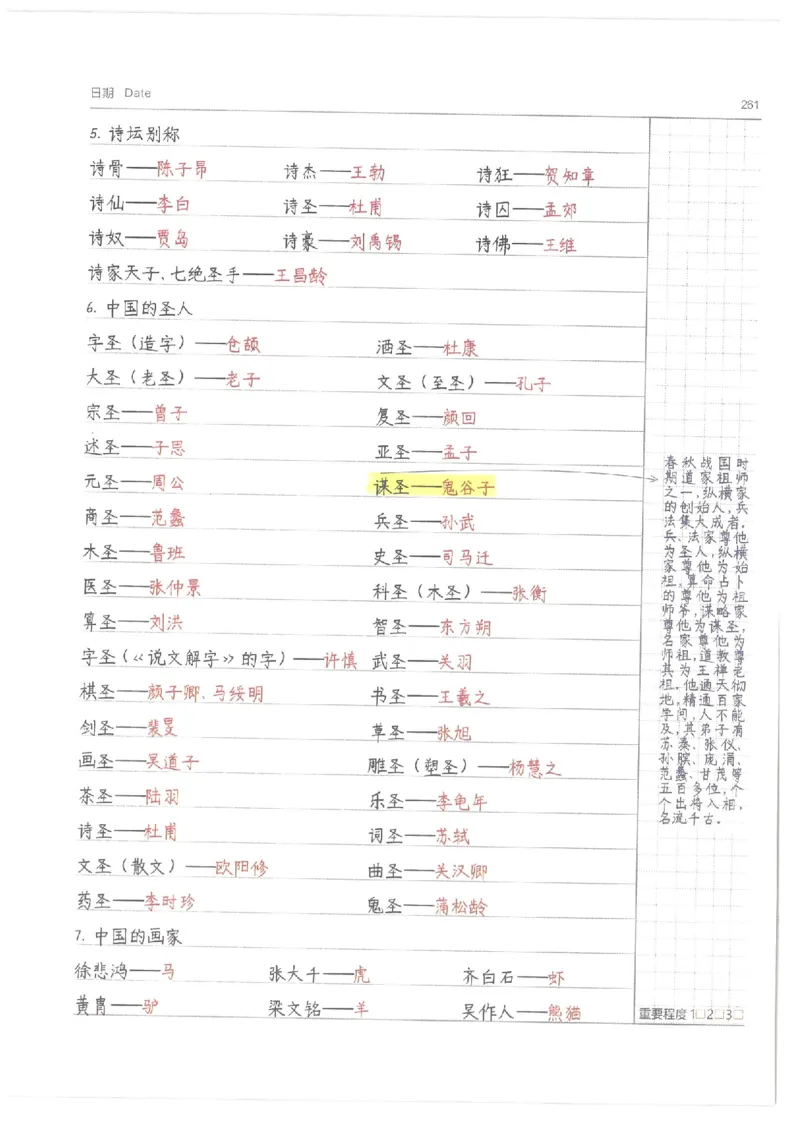 日期 Date
261
5. 诗坛别称
诗骨——陈子昂 诗杰——王勃 诗狂——贺知章
诗仙——李白 诗圣——杜甫 诗囚——孟郊
诗奴——贾岛 诗豪——刘禹锡 诗佛——王维
诗家天子、七绝圣手——王昌龄
6. 中国的圣人
字圣（造字）——仓颉 酒圣——杜康
大圣（老圣）——老子 文圣（至圣）——孔子
宗圣——曾子 复圣——颜回
述圣——子思 亚圣——孟子
元圣——周公 谋圣——鬼谷子
商圣——范蠡 兵圣——孙武
木圣——鲁班 史圣——司马迁
医圣——张仲景 科圣（木圣）——张衡
算圣——刘洪 智圣——东方朔
字圣（《说文解字》的字）——许慎 武圣——关羽
棋圣——颜子卿、马绥明 书圣——王羲之
剑圣——裴旻 草圣——张旭
画圣——吴道子 雕圣（塑圣）——杨惠之
茶圣——陆羽 乐圣——李龟年
诗圣——杜甫 词圣——苏轼
文圣（散文）——欧阳修 曲圣——关汉卿
药圣——李时珍 鬼圣——蒲松龄
7. 中国的画家
徐悲鸿——马 张大千——虎 齐白石——虾
黄胄——驴 梁文铭——羊 吴作人——熊猫
春秋战国时
期道家祖师
之一，纵横家
的创始人，兵
法集大成者。
兵、法家尊他
为圣人，纵横
家尊他为始
祖，算命占卜
的尊他为祖
师爷，谋略家
尊他为谋圣，
名家尊他为
师祖，道教尊
其为王禅老
祖。他通天彻
地，精通百家
学问，人不能
及，其弟子有
苏秦、张仪、
孙膑、庞涓、
范蠡、甘茂等
五百多位，个
个出将入相，
名流千古。
重要程度 1□2□3□